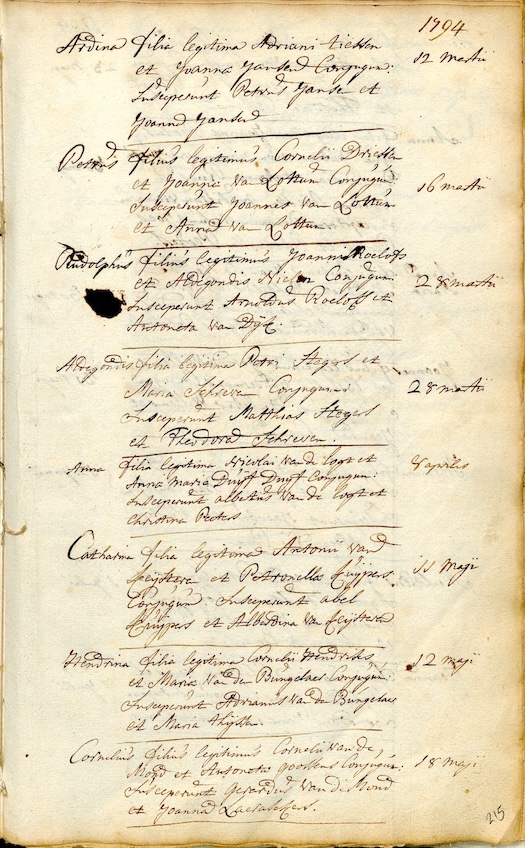 1794
Ardina filia legitima Adriani Tiessen 12 martii
et Joanna Jansen Conjugum:
Susceperunt Petrus Janse et
Joanna Jansen
Petrus filius legitimus Cornelii Driessen
et Joanna van Lottum Conjugum 16 martii
Susceperunt Joannes van Lottum
et Anna van Lottum
Rudolphus filius legitimus Joannis Roelofs
et Aldegondis Conjugum: 28 martii
Susceperunt Arnoldus Roelofs et
Antoneta van Dijk:
Aldegondis filia legitima Petri Stegers et
Maria Schreven Conjugum: 28 martii
Susceperunt Matthias Stegers
et Theodora Schreven.
Anna filia legitima Nicolai van de Logt et 8 aprilis
Anna Maria Duijf Duijf Conjugum:
Susceperunt albertus van de logt et
Christina Peeters
Catharina filia legitima Antonii van
et Petronella Cuijpers 11 Maji
Conjugum: Susceperunt abel
Cuijpers et Alberdina van
Hendrina filia legitima Cornelii Hendriks 12 maji
et Maria van den Bungelaer Conjugum:
Susceperunt Adrianus van den Bungelaer
et Maria Thijssen.
Cornelius filius legitimus Cornelii van de
Mond et Antoneta Goossens Conjugum: 18 maji
Susceperunt Gerardus van de Mond
et Joanna
215